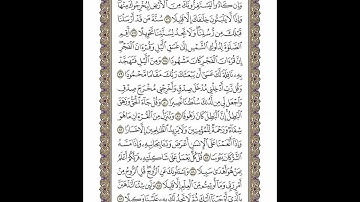 وَإِن كَادُوا۟ لَيَسْتَفِزُّونَكَ مِنَ ٱلْأَرْضِ لِيُخْرِجُوكَ مِنْهَا
وَإِذًا لَّا يَلْبَثُونَ خِلَـٰفَكَ إِلَّا قَلِيلًا ٧٦ سُنَّةَ مَن قَدْ أَرْسَلْنَا
قَبْلَكَ مِن رُّسُلِنَا وَلَا تَجِدُ لِسُنَّتِنَا تَحْوِيلًا ٧٧ أَقِمِ
ٱلصَّلَوٰةَ لِدُلُوكِ ٱلشَّمْسِ إِلَىٰ غَسَقِ ٱلَّيْلِ وَقُرْءَانَ ٱلْفَجْرِ
إِنَّ قُرْءَانَ ٱلْفَجْرِ كَانَ مَشْهُودًا ٧٨ وَمِنَ ٱلَّيْلِ فَتَهَجَّدْ
بِهِۦ نَافِلَةً لَّكَ عَسَىٰٓ أَن يَبْعَثَكَ رَبُّكَ مَقَامًا مَّحْمُودًا ٧٩
وَقُل رَّبِّ أَدْخِلْنِى مُدْخَلَ صِدْقٍ وَأَخْرِجْنِى مُخْرَجَ صِدْقٍ
وَٱجْعَل لِّى مِن لَّدُنكَ سُلْطَـٰنًا نَّصِيرًا ٨٠ وَقُلْ جَآءَ ٱلْحَقُّ وَزَهَقَ
ٱلْبَـٰطِلُ إِنَّ ٱلْبَـٰطِلَ كَانَ زَهُوقًا ٨١ وَنُنَزِّلُ مِنَ ٱلْقُرْءَانِ مَا هُوَ
شِفَآءٌ وَرَحْمَةٌ لِّلْمُؤْمِنِينَ وَلَا يَزِيدُ ٱلظَّـٰلِمِينَ إِلَّا خَسَارًا ٨٢
وَإِذَآ أَنْعَمْنَا عَلَى ٱلْإِنسَـٰنِ أَعْرَضَ وَنَـَٔا بِجَانِبِهِۦ وَإِذَا مَسَّهُ
ٱلشَّرُّ كَانَ يَـُٔوسًا ٨٣ قُلْ كُلٌّ يَعْمَلُ عَلَىٰ شَاكِلَتِهِۦ فَرَبُّكُمْ أَعْلَمُ
بِمَنْ هُوَ أَهْدَىٰ سَبِيلًا ٨٤ وَيَسْـَٔلُونَكَ عَنِ ٱلرُّوحِ قُلِ ٱلرُّوحُ مِنْ
أَمْرِ رَبِّى وَمَآ أُوتِيتُم مِّنَ ٱلْعِلْمِ إِلَّا قَلِيلًا ٨٥ وَلَئِن شِئْنَا لَنَذْهَبَنَّ
بِٱلَّذِىٓ أَوْحَيْنَآ إِلَيْكَ ثُمَّ لَا تَجِدُ لَكَ بِهِۦ عَلَيْنَا وَكِيلًا ٨٦